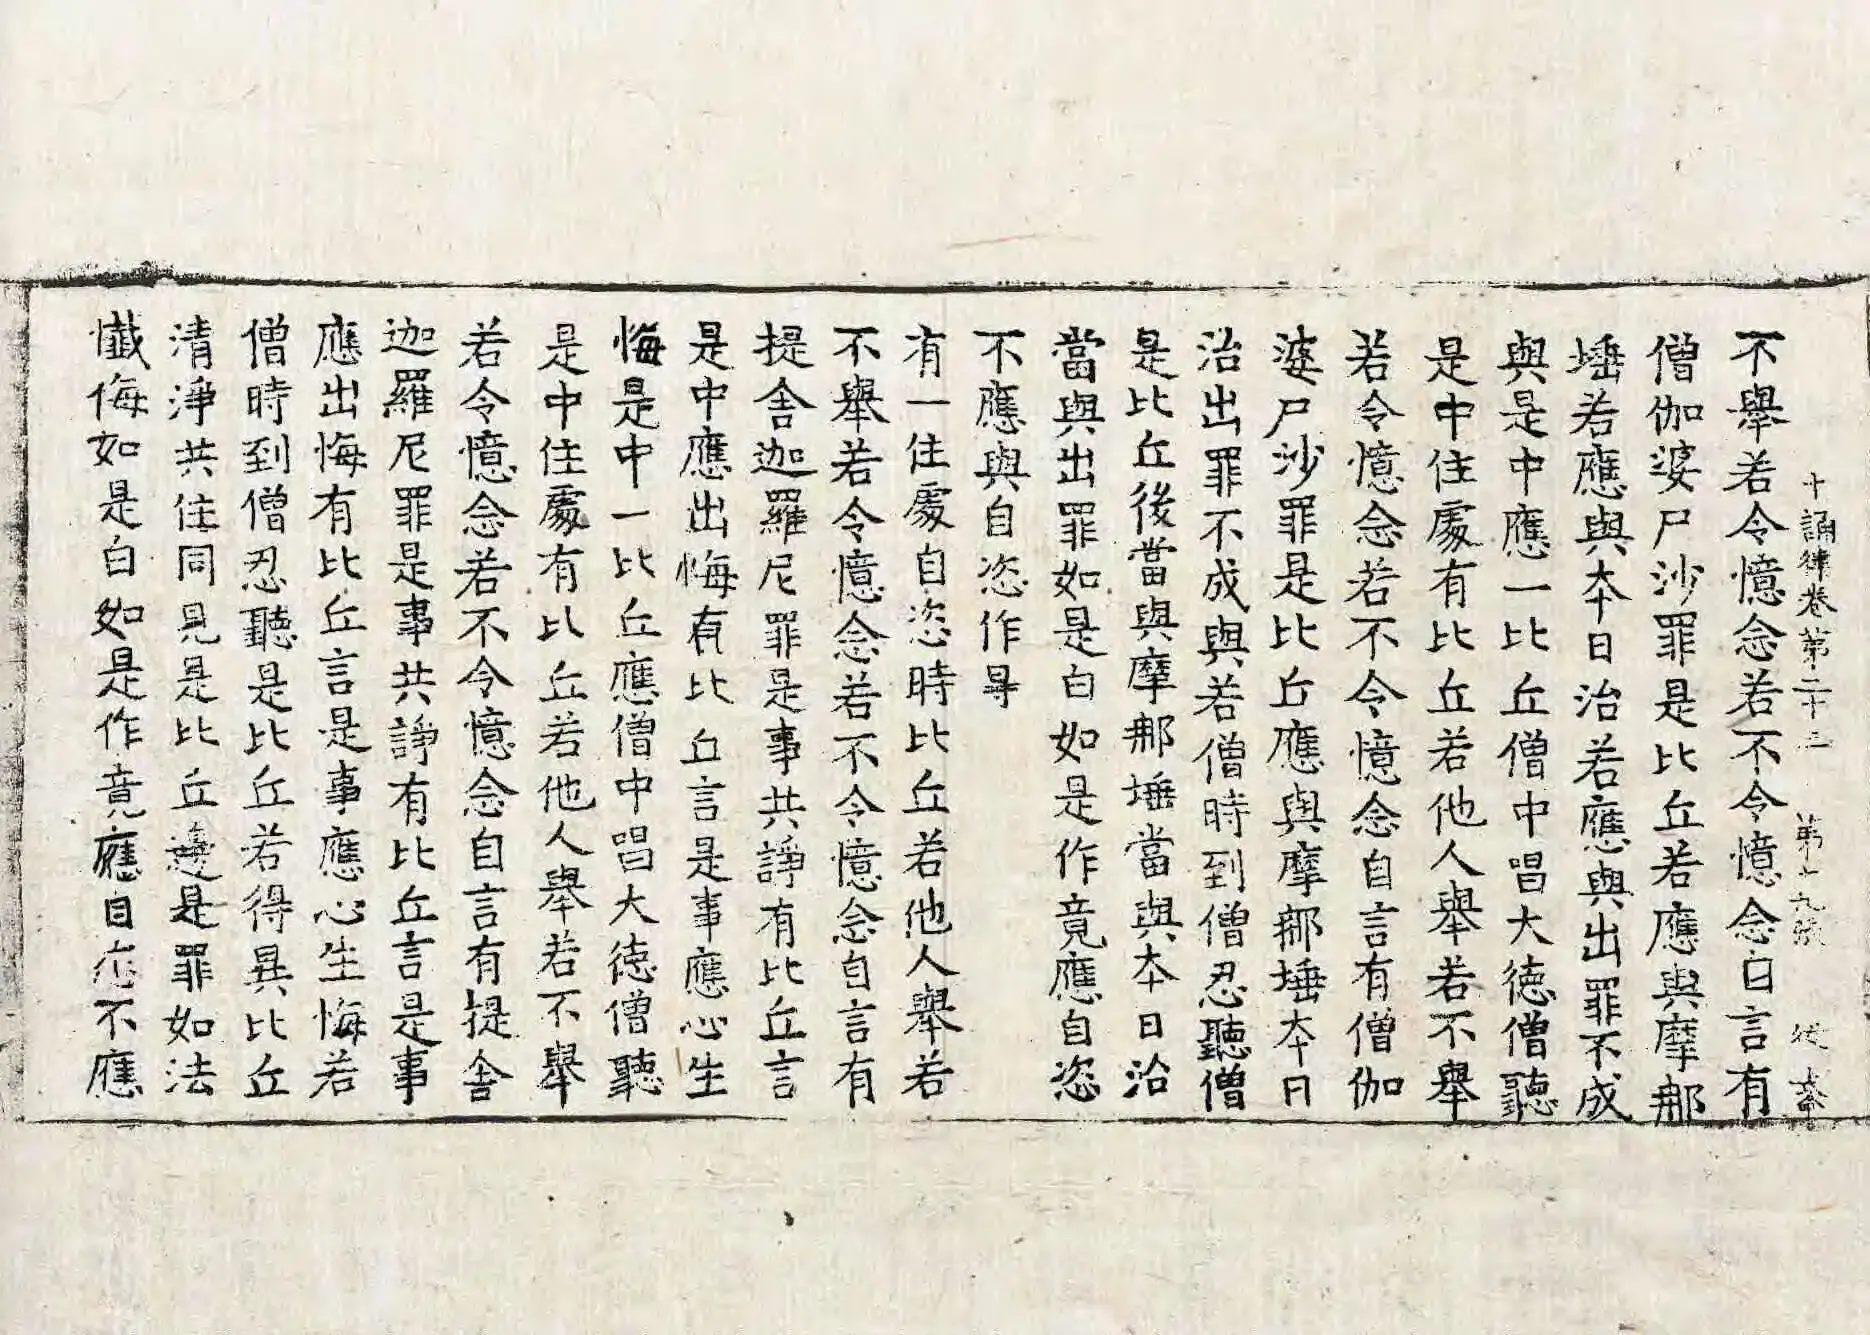 十誦律卷第二十三 第十九張 從
不舉若令憶念若不令憶念自言有
僧伽婆尸沙罪是比丘若應與摩那
埵若應與夲日治若應與出罪不成
與是中應一比丘僧中唱大徳僧聽
是中住處有比丘若他人舉若不舉
若令憶念若不令憶念自言有僧伽
婆尸沙罪是比丘應與摩那埵夲日
治出罪不成與若僧時到僧忍聽僧
是比丘後當與摩那埵當與夲日治
當與出罪如是白如是作竟應自恣
不應與自恣作㝵
有一住處自恣時比丘若他人舉若
不舉若令憶念若不令憶念自言有
提舎迦羅尼罪是事共諍有比丘言
是中應出悔有比丘言是事應心生
悔是中一比丘應僧中唱大徳僧聽
是中住處有比丘若他人舉若不舉
若令憶念若不令憶念自言有提舎
迦羅尼罪是事共諍有比丘言是事
應出悔有比丘言是事應心生悔若
僧時到僧忍聽是比丘若得異比丘
清淨共住同見是比丘邊是罪如法
懺悔如是白如是作竟應自恣不應